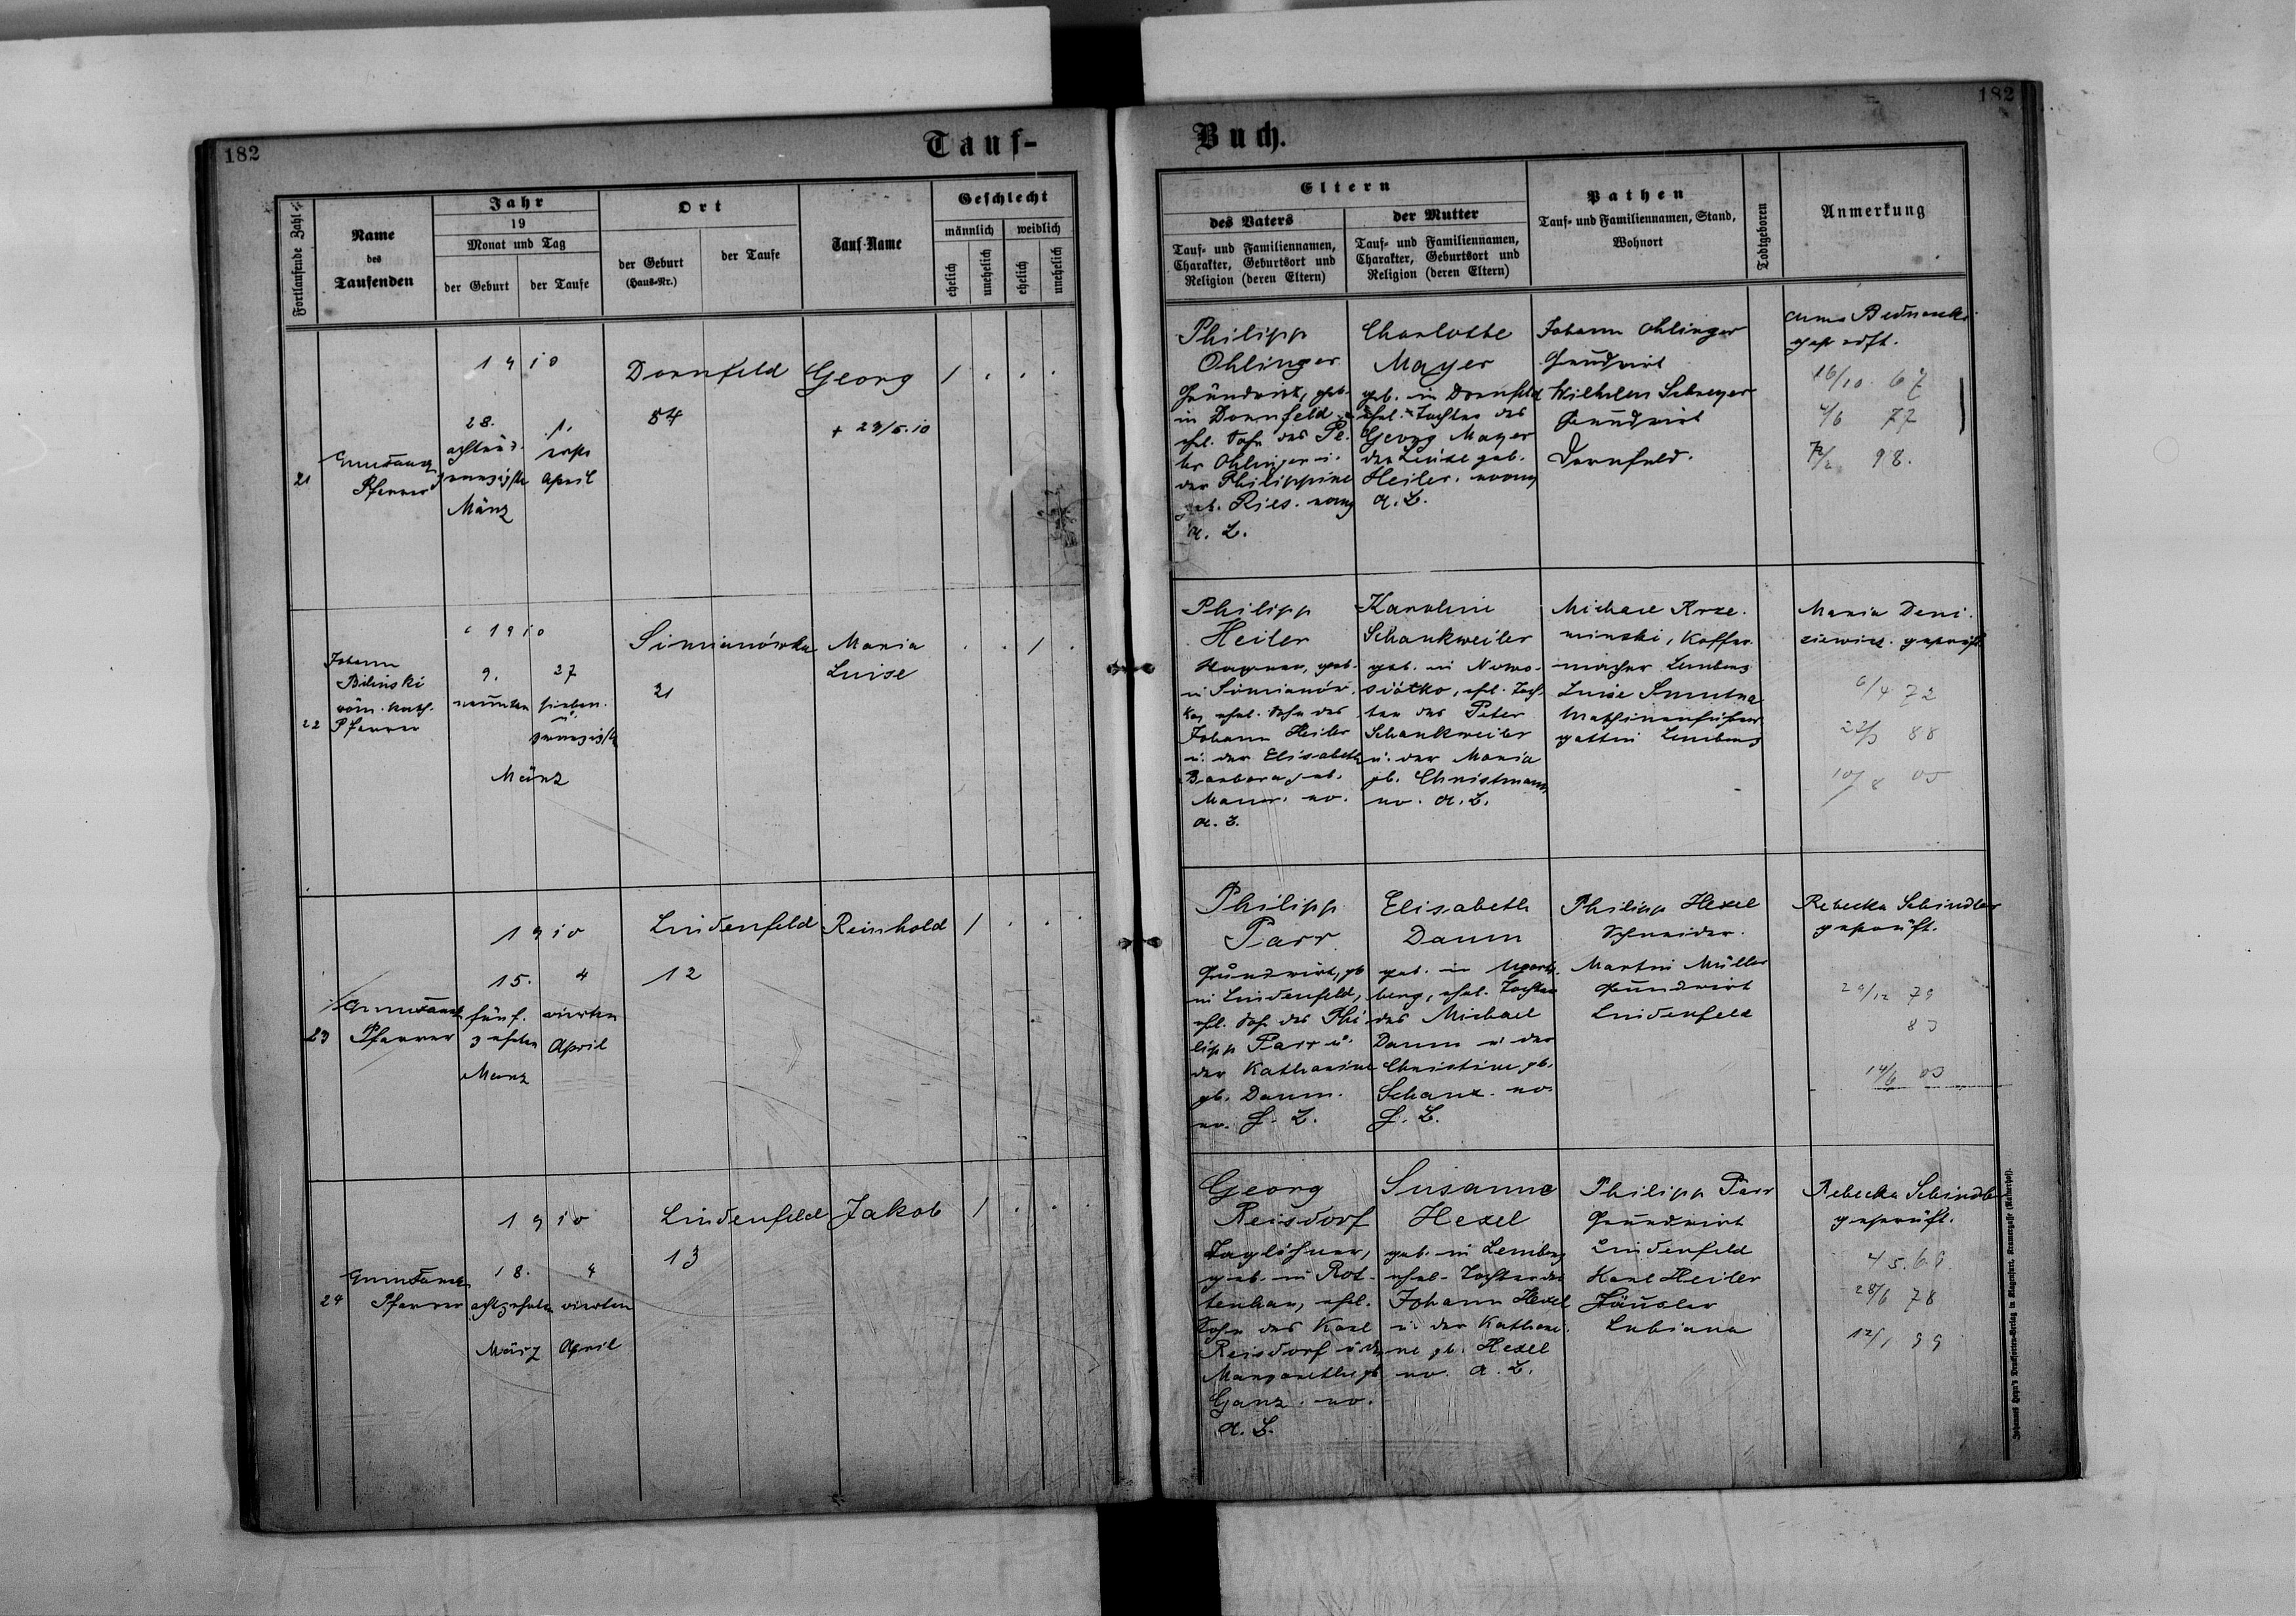 182
Tauf-
Fortlaufende Zahl
Name
des
Taufenden
Jahr
19
Monat und Tag
der Geburt
der Taufe
Ort
der Geburt
(Haus-Nr.)
der Taufe
Tauf-Name
Geschlecht
männlich
weiblich
ehelich
unehelich
ehelich
unehelich
21
Pfarrer
1910
28.
März
1.
April
Dornfeld
54
Georg
+ 29/5.10
1 . . .
22
Johann
Bilinski
röm. kath.
Pfarrer
1910
9.
neunten
27
sieben
u.
zwanzigste
März
Simianówka
21
Maria
Luise
. . 1 .
23
Pfarrer
1910
15.
fünf.
zehnten
März
4
vierten
April
Lindenfeld
12
Reinhold
1 . . .
24
Pfarrer
1910
18.
achtzehnten
März
4
vierten
April
Lindenfeld
13
Jakob
1 . . .
182
Buch.
Eltern
des Vaters
Tauf- und Familiennamen,
Charakter, Geburtsort und
Religion (deren Eltern)
der Mutter
Tauf- und Familiennamen,
Charakter, Geburtsort und
Religion (deren Eltern)
Pathen
Tauf- und Familiennamen, Stand,
Wohnort
Todtgeboren
Anmerkung
Philipp
Ohlinger
Grundwirt, geb.
in Dornfeld
ehl. Sohn des Pe-
ter Ohlinger u.
der Philippine
geb. Ries. evang
A. B.
Charlotte
Mayer
geb. in Dornfeld
ehel. Tochter des
Georg Mayer
der Luise geb.
Heiler. evang
A. B.
Johann Ohlinger
Grundwirt
Wilhelm Schreyer
Grundwirt
Dornfeld.
Anna
16/10. 67
77
98.
Philipp
Heiler
Wagner, geb.
in Simianów.
ka, ehel. Sohn des
Johann Heiler
u. der Elisabeth
Barbara geb.
Maurer. ev.
A. B.
Karoline
Schankweiler
geb. in Nowo-
siółko, ehl. Toch-
ter des Peter
Schankweiler
u. der Maria
gb. Christmann
ev. A. B.
Michael Krze-
minski, Koffer-
macher Lemberg
Luise
Maschinenführers
gattin Lemberg
Maria Deni-
ziewicz. geprüft
6/4 72
22/3 88
10/8 05
Philipp
Parr
Grundwirt, gb
in Lindenfeld,
ehl. Sohn des Phi-
lipp Parr u.
der Katharine
gb. Daum.
ev. H. B.
Elisabeth
Daum
geb. in Ugarts-
berg, ehel. Tochter
des Michael
Daum u. der
Christine gb.
Schanz. ev.
H. B.
Philipp Hexel
Schneider.
Martin Müller
Grundwirt
Lindenfeld
Rebecka Schindler
geprüft.
29/12 79
83
14/6 03
Georg
Reisdorf
Taglöhner,
geb. in Rot-
tenhan, ehl.
Sohn des Karl
Reisdorf u. der
Margarethe gb
Ganz. ev.
A. B.
Susanne
Hexel
geb. in Lemberg
ehel. Tochter des
Johann Hexel
u. der Kathari-
ne gb. Hexel
ev. A. B.
Philipp Parr
Grundwirt
Lindenfeld
Karl Heiler
Häusler
Lubiana
Rebecka Schindler
geprüft.
4 5. 69.
28/6 78
12/1 99